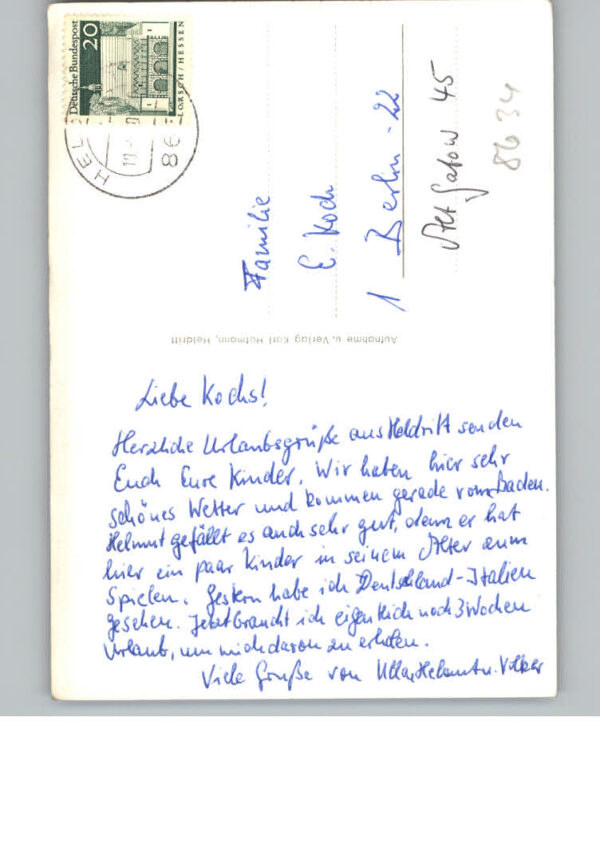 Deutsche Bundespost
20
LORSCH / HESSEN
863
Familie
E. Koch
1 Berlin-22
Alt Gatow 45
8634
Aufnahme u. Verlag Karl Hofmann, Heldritt
Liebe Kochs!
Herzliche Urlaubsgrüße aus Heldritt senden
Euch Eure Kinder. Wir haben hier sehr
schönes Wetter und kommen gerade vom Baden.
Helmut gefällt es auch sehr gut, denn er hat
hier ein paar Kinder in seinem Alter zum
Spielen. Gestern habe ich Deutschland-Italien
gesehen. Jetzt braucht ich eigentlich noch 3 Wochen
Urlaub, um mich davon zu erholen.
Viele Grüße von Ulla, Helmut u. Volker